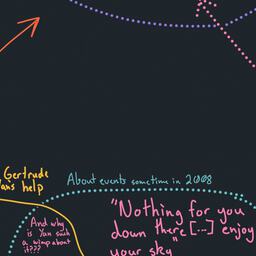 Gertrude
help
About events sometime in 2008
And why
is Jan such
a wimp about
it???
"Nothing for you
down there [...] enjoy
your sky"